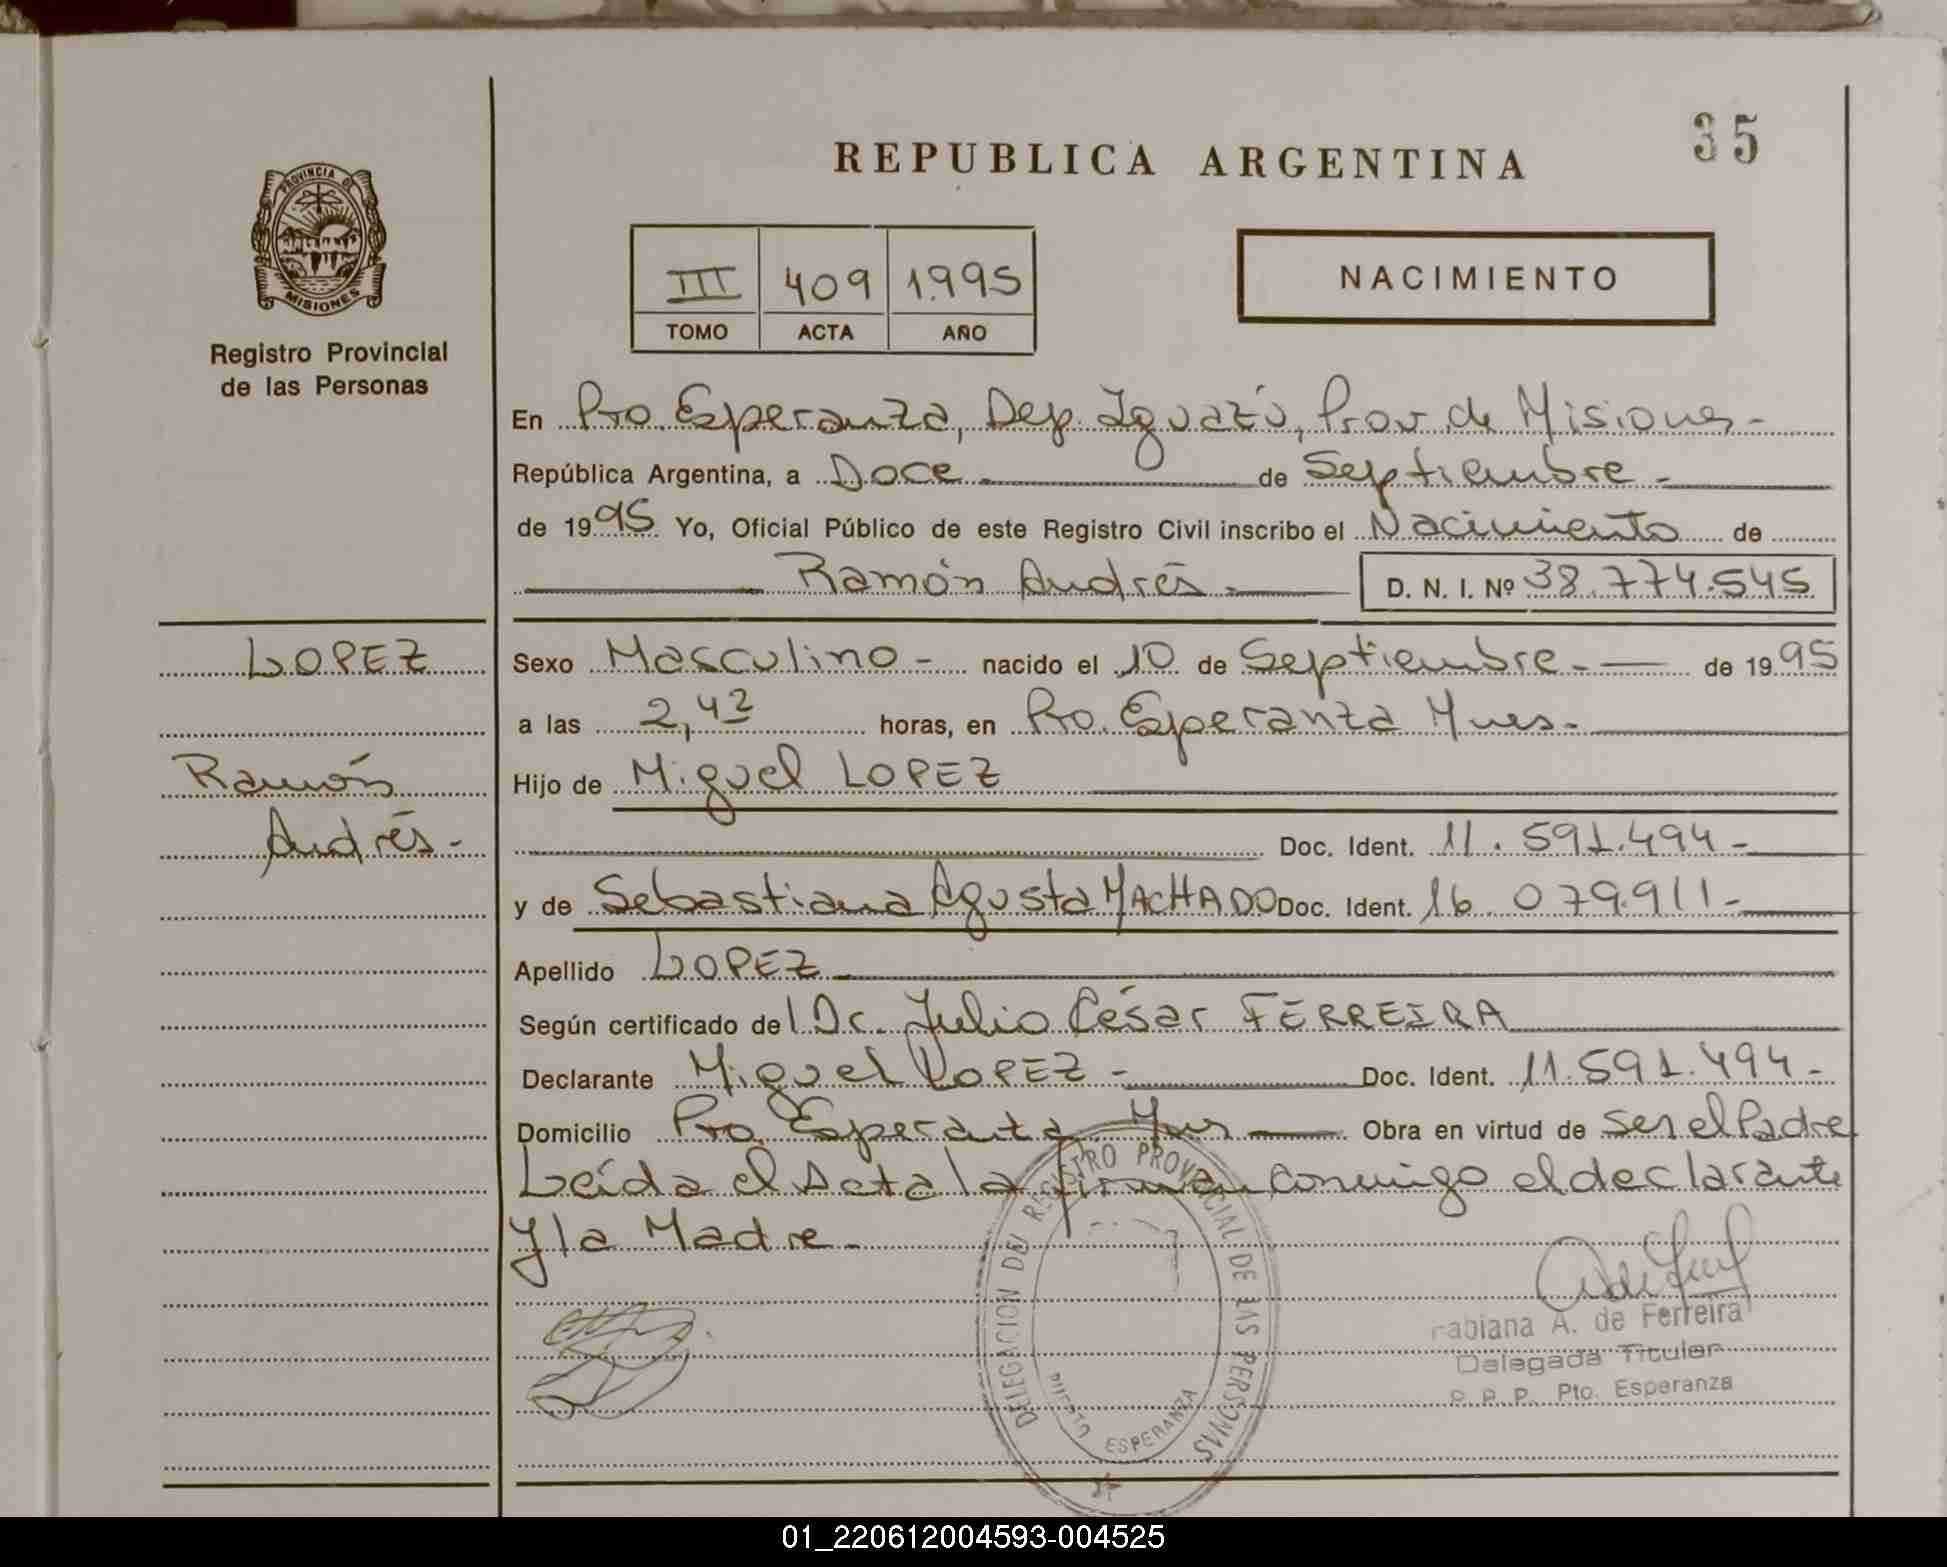 35
REPUBLICA ARGENTINA
PROVINCIA DE
MISIONES
Registro Provincial
de las Personas
III 409 1.995
TOMO ACTA AÑO
NACIMIENTO
En Pto. Esperanza, Dep. Iguazú, Prov de Misiones-
República Argentina, a Doce de Septiembre-
de 1995 Yo, Oficial Público de este Registro Civil inscribo el Nacimiento de
Ramón Andrés- D. N. I. Nº 38.774.545
LOPEZ
Ramón
Andrés-
Sexo Masculino- nacido el 10 de Septiembre- de 1995
a las 2,42 horas, en Pto. Esperanza Mnes-
Hijo de Miguel LOPEZ
Doc. Ident. 11.591.494-
y de Sebastiana Agusta MACHADO Doc. Ident. 16.079.911-
Apellido LOPEZ
Según certificado del Dr. Julio César FERREIRA
Declarante Miguel LOPEZ- Doc. Ident. 11.591.494-
Domicilio Pto. Esperanza Mnes Obra en virtud de ser el Padre
Leída el Acta la firman conmigo el declarante
y la Madre-
DELEGACION DEL REGISTRO PROVINCIAL DE LAS PERSONAS
PUERTO ESPERANZA
Fabiana A. de Ferreira
Delegada Titular
R. P. P. Pto. Esperanza
01_220612004593-004525